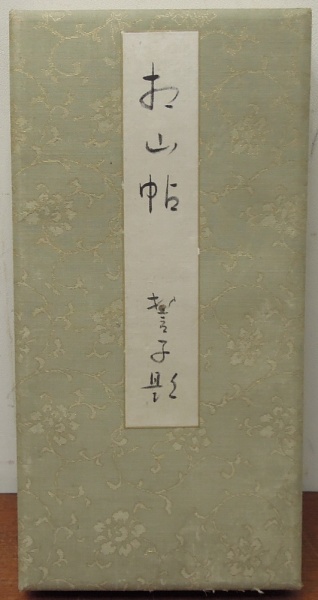 山帖
誓子題